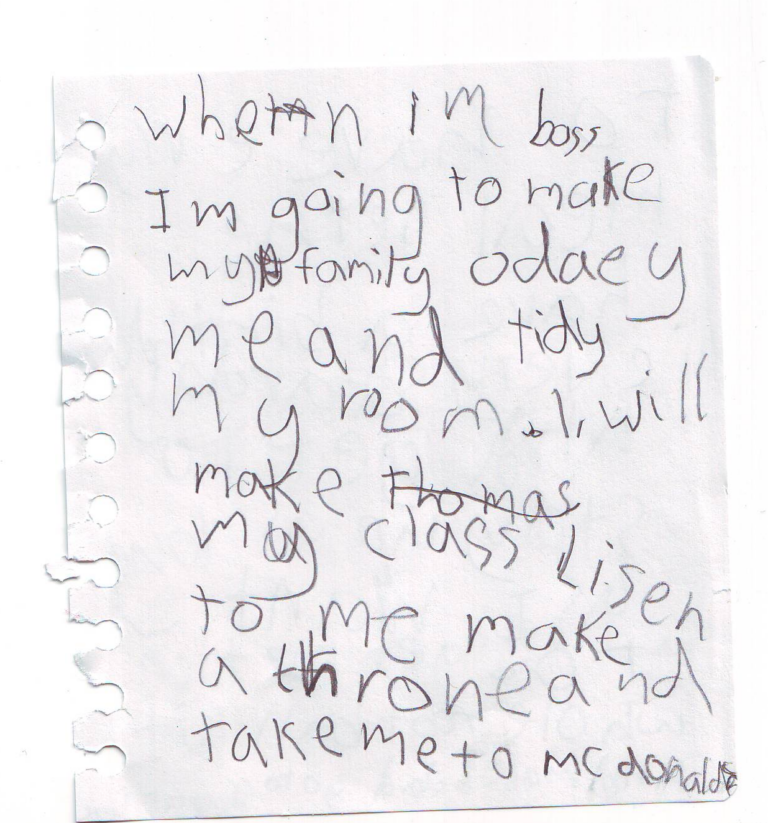 when im boss
Im going to make
my family odaey
me and tidy
my room. I, will
make thomas
my class Lisen
to me make
a throne and
take me to mcdonalds